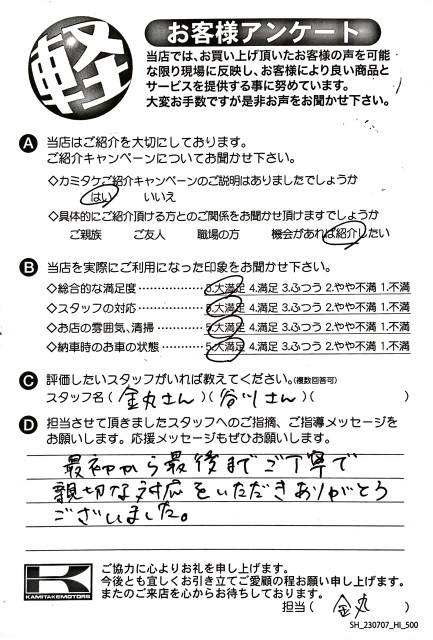 軽
お客様アンケート
当店では、お買い上げ頂いたお客様の声を可能
な限り現場に反映し、お客様により良い商品と
サービスを提供する事に努めています。
大変お手数ですが是非お声をお聞かせ下さい。
A 当店はご紹介を大切にしております。
ご紹介キャンペーンについてお聞かせ下さい。
◇カミタケご紹介キャンペーンのご説明はありましたでしょうか
はい いいえ
◇具体的にご紹介頂ける方とのご関係をお聞かせ頂けますでしょうか
ご親族 ご友人 職場の方 機会があれば紹介したい
B 当店を実際にご利用になった印象をお聞かせ下さい。
◇総合的な満足度……………… 5.大満足 4.満足 3.ふつう 2.やや不満 1.不満
◇スタッフの対応……………… 5.大満足 4.満足 3.ふつう 2.やや不満 1.不満
◇お店の雰囲気、清掃………… 5.大満足 4.満足 3.ふつう 2.やや不満 1.不満
◇納車時のお車の状態………… 5.大満足 4.満足 3.ふつう 2.やや不満 1.不満
C 評価したいスタッフがいれば教えてください。(複数回答可)
スタッフ名(金丸さん)(谷川さん)( )
D 担当させて頂きましたスタッフへのご指摘、ご指導メッセージを
お願いします。応援メッセージもぜひお願いします。
最初から最後までご丁寧で
親切な対応をいただきありがとう
ございました。
K
KAMITAKEMOTORS
ご協力に心よりお礼を申し上げます。
今後とも宜しくお引き立てご愛顧の程お願い申し上げます。
またのご来店を心からお待ちしております。
担当( 金丸 )
SH_230707_HI_500